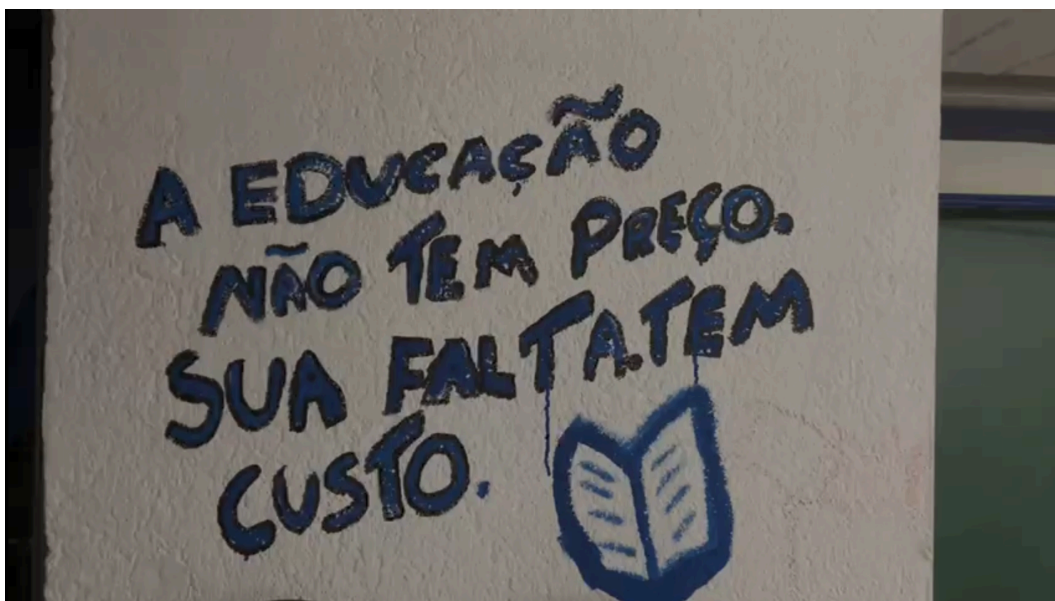 A EDUCAÇÃO
NÃO TEM PREÇO.
SUA FALTA.TEM
CUSTO.